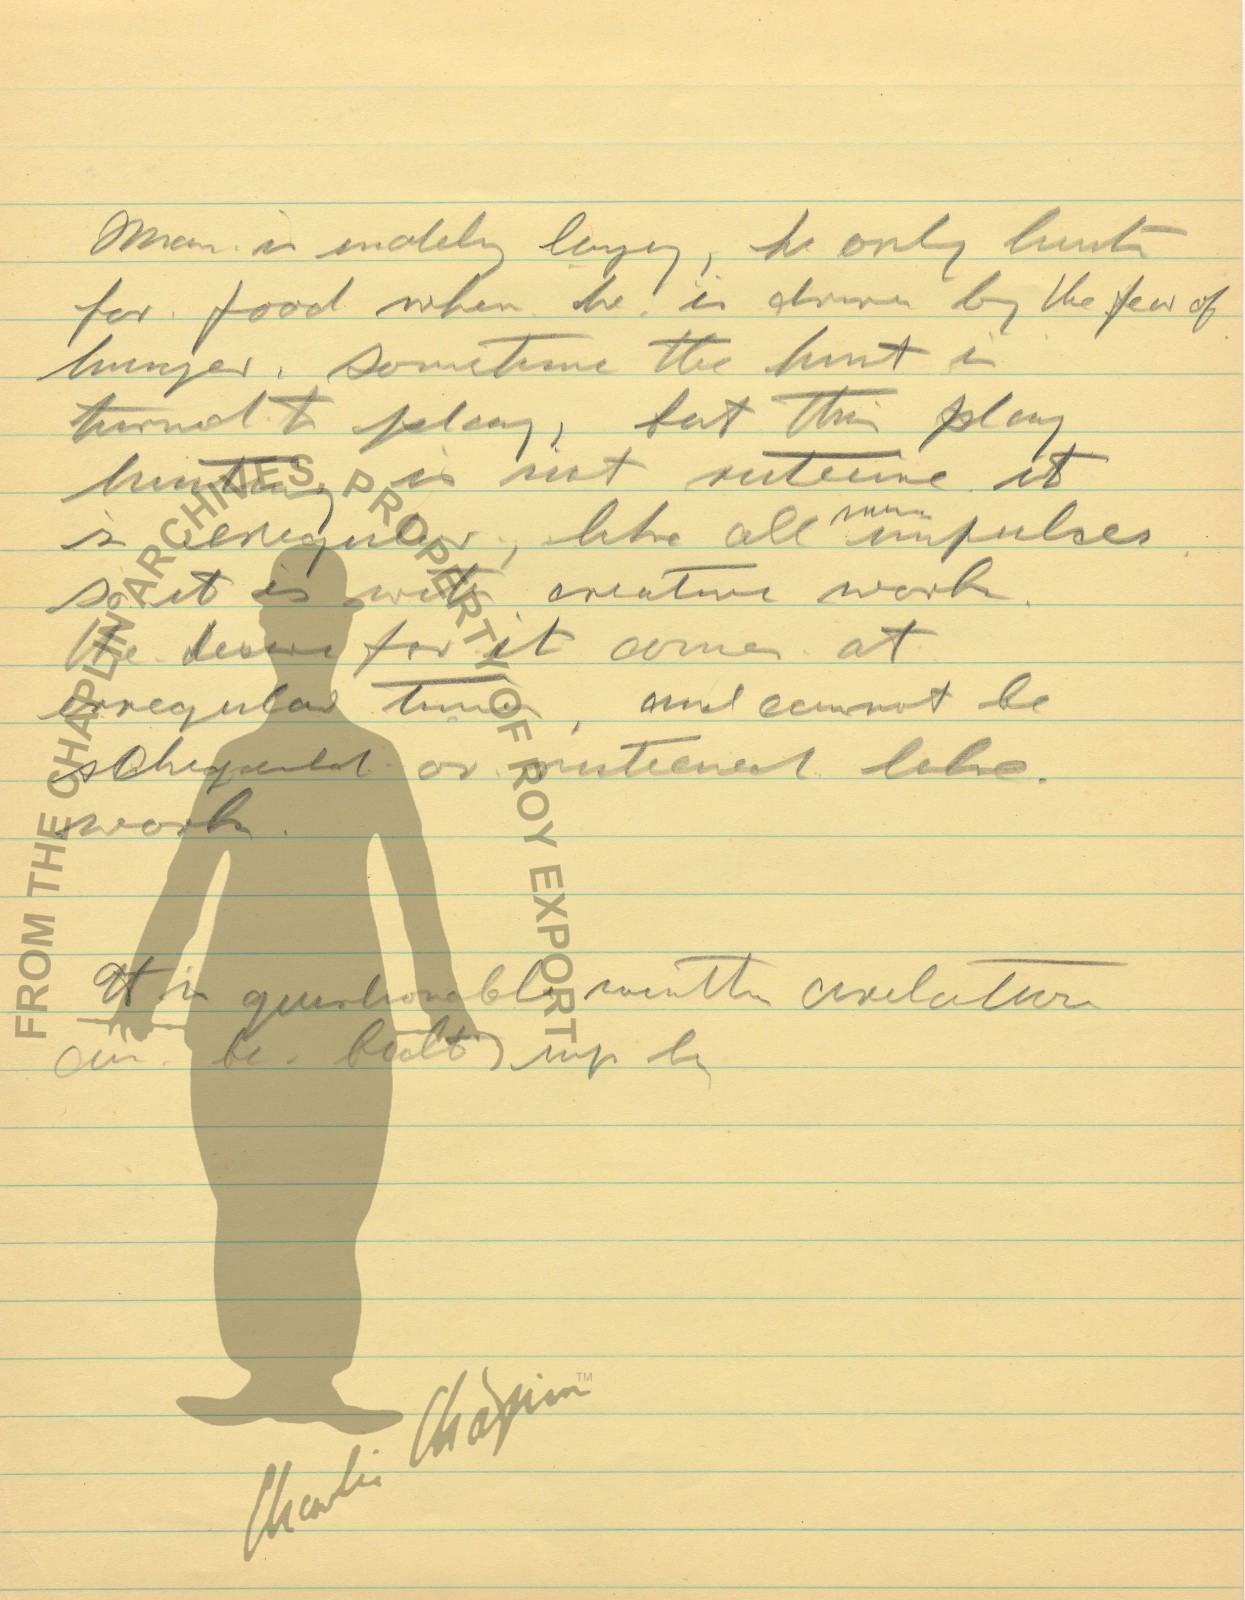 Man is lazy, he only hunts
for food when he is driven by the fear of
hunger. Sometime the hunt is
turned to play, but this play
hunting is not it
is like all impulses
so it is with creative work.
the desire for it comes at
irregular times, and cannot be
or like
work.
It is questionable
can be built up by
FROM THE CHAPLIN ARCHIVES, PROPERTY OF ROY EXPORT
Charlie Chaplin™